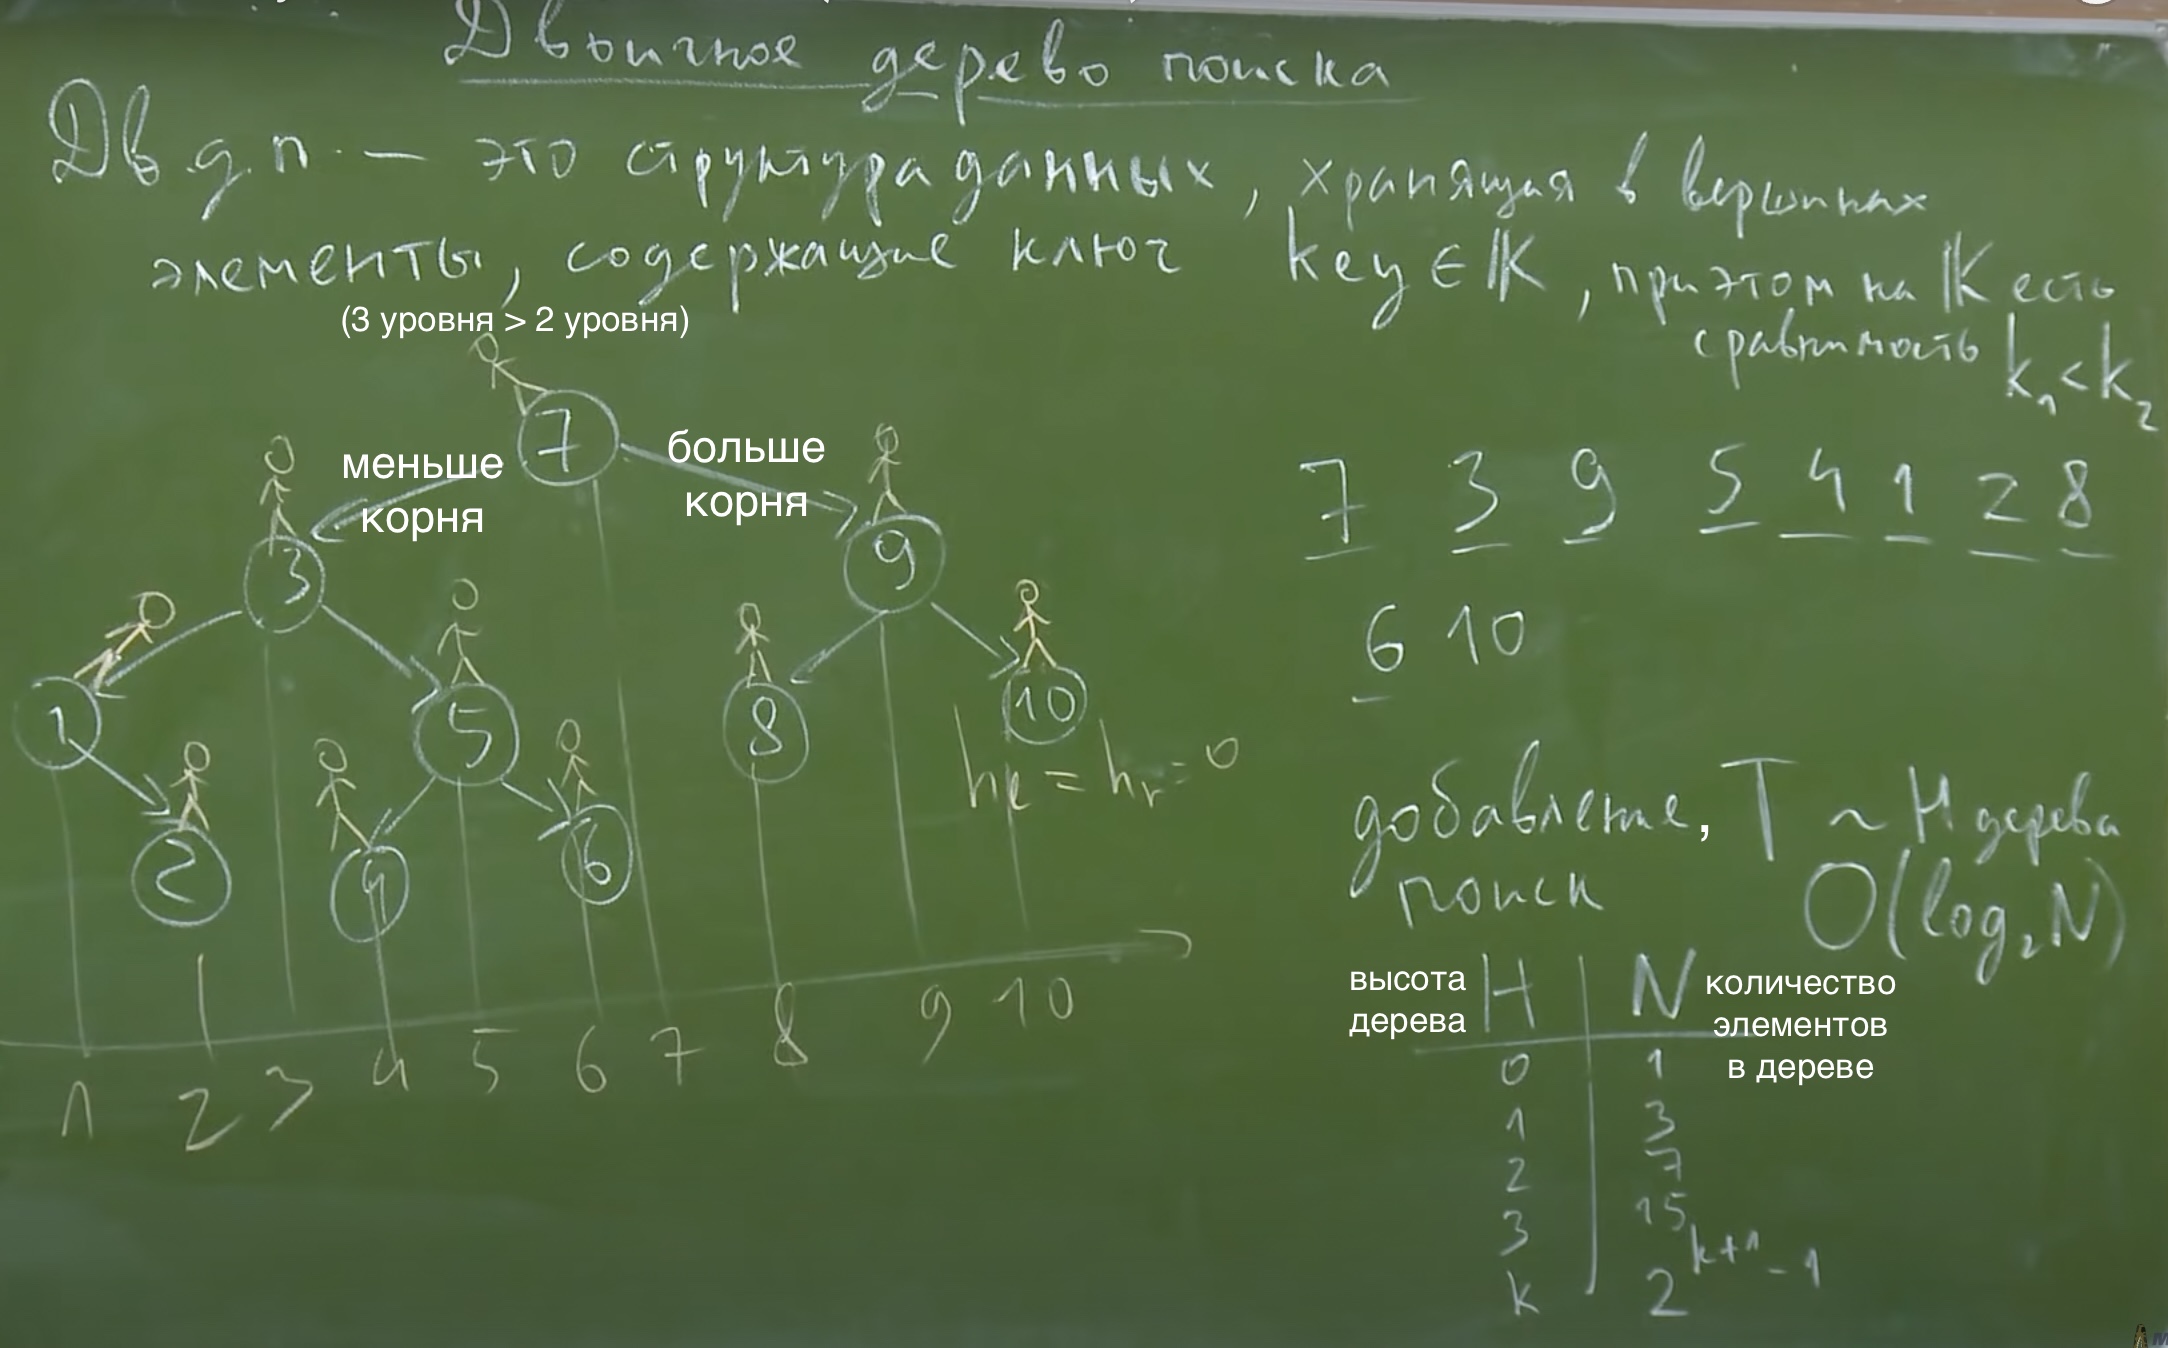 Двоичное дерево поиска
Дв.д.п. — это структура данных, хранящая в вершинах
элементы, содержащие ключ key ∈ 𝕂, при этом на 𝕂 есть
сравнимость k₁ < k₂
(3 уровня > 2 уровня)
7
меньше
корня
больше
корня
3
9
1
5
8
10
hₗ = hᵣ = 0
2
4
6
1 2 3 4 5 6 7 8 9 10
7 3 9 5 4 1 2 8
6 10
добавление, T ~ H дерева
поиск O(log₂N)
высота
дерева
H N
количество
элементов
в дереве
0 1
1 3
2 7
3 15
k 2ᵏ⁺¹ - 1